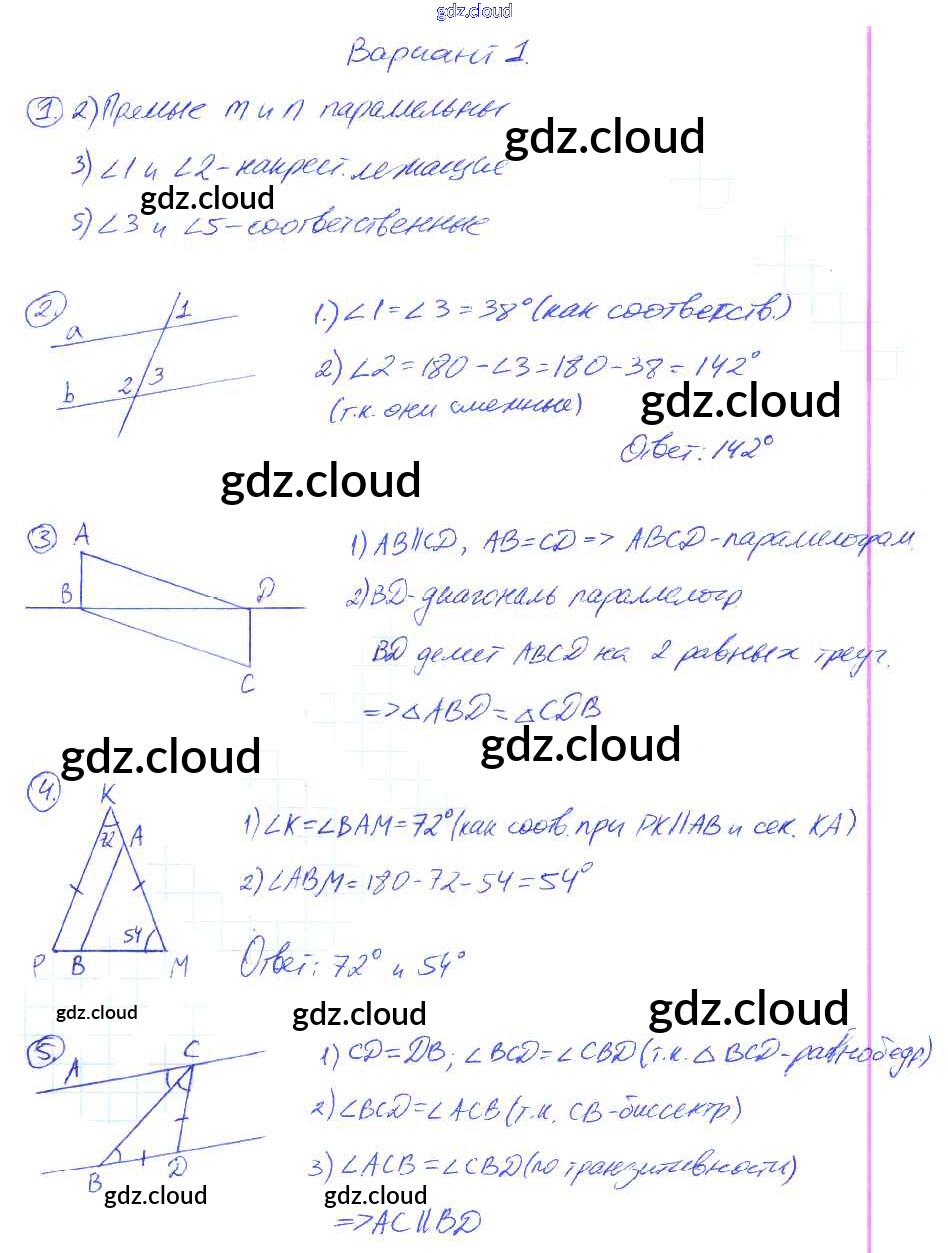 gdz.cloud
Вариант 1.
1. 2) Прямые m и n параллельны
gdz.cloud
3) ∠1 и ∠2 - накрест. лежащие
gdz.cloud
5) ∠3 и ∠5 - соответственные
2.
a
1
b
2
3
1.) ∠1 = ∠3 = 38° (как соответств.)
2) ∠2 = 180 - ∠3 = 180 - 38 = 142°
(т.к. они смежные)
gdz.cloud
Ответ: 142°
gdz.cloud
3
A
B
D
C
1) AB∥CD, AB=CD => ABCD - параллелограм.
2) BD - диагональ параллелогр.
BD делит ABCD на 2 равных треуг.
=> △ABD = △CDB
gdz.cloud
gdz.cloud
4.
K
72
A
54
P
B
M
1) ∠K = ∠BAM = 72° (как соотв. при PK∥AB и сек. KA)
2) ∠ABM = 180 - 72 - 54 = 54°
Ответ: 72° и 54°
gdz.cloud
gdz.cloud
gdz.cloud
5.
A
C
B
D
1) CD = DB; ∠BCD = ∠CBD (т.к. △ BCD - равнобедр)
2) ∠BCD = ∠ACB (т.к. CB - биссектр)
3) ∠ACB = ∠CBD (по транзитивности)
gdz.cloud
gdz.cloud
=> AC∥BD